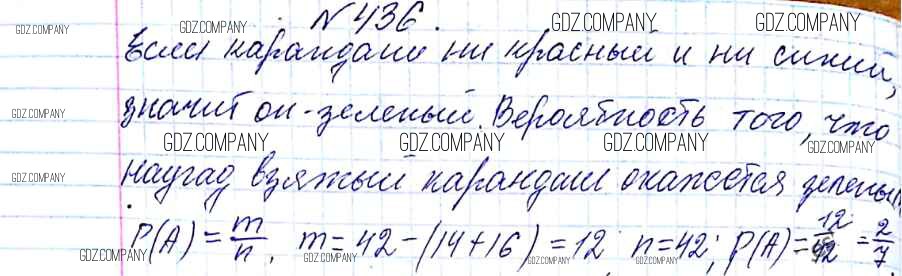 №436.
GDZ.COMPANY GDZ.COMPANY GDZ.COMPANY GDZ.COMPANY
Если карандаш ни красный и ни синий,
значит он - зеленый. Вероятность того, что
GDZ.COMPANY
GDZ.COMPANY GDZ.COMPANY GDZ.COMPANY GDZ.COMPANY
наугад взятый карандаш окажется зелены
GDZ.COMPANY
P(A) = m/n. m = 42 - (14 + 16) = 12 n = 42; P(A) = 12/42 = 2/7
GDZ.COMPANY GDZ.COMPANY GDZ.COMPANY GDZ.COMPANY